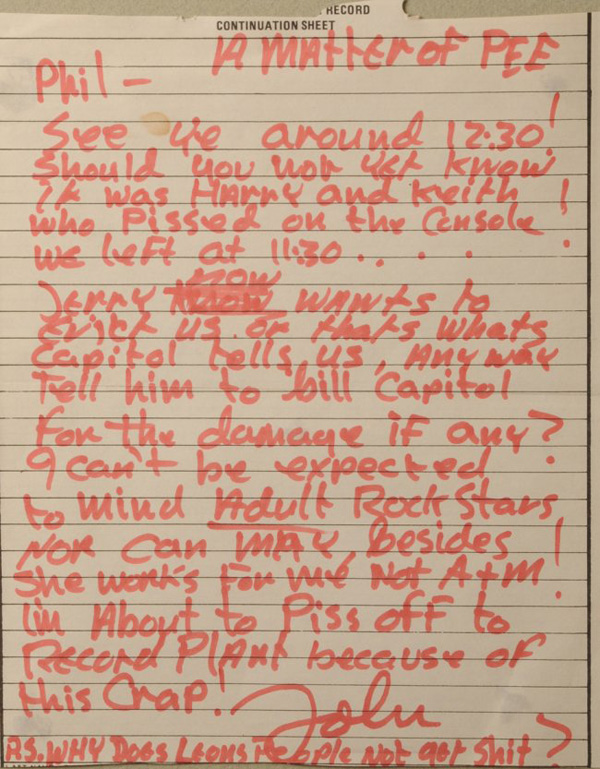 RECORD
CONTINUATION SHEET
A MAtter oF PEE
Phil —
See Ye around 12.30!
Should you not yet know
it was HARRY and Keith !
who Pissed on the Console .
we left at 11:30 . . . .
now
Jerry wants to
Evict us. or thats whats
Capitol tells us, Any way
Tell him to bill Capitol
For the damage if any?
I can't be expected
to mind Adult Rock Stars
NOR can MAY, besides
She works For me Not A+M!
I'm About to Piss off to
Record Plant because of
this Crap!
John
P.S. WHY Does Leons People Not get Shit ?